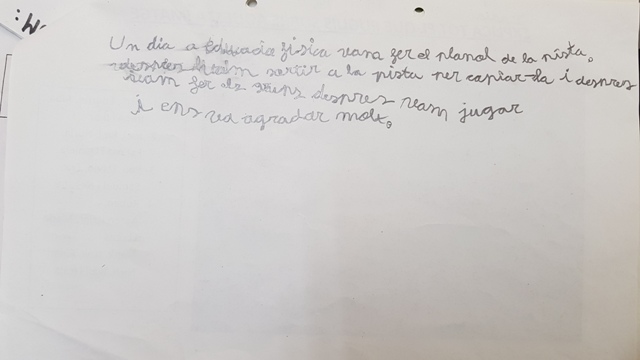 :M.
Un dia a educacio fisica vam fer el planol de la pista.
sortir a la pista per copiar-la i despres
vam fer els grups despres vam jugar
i ens va agradar molt.